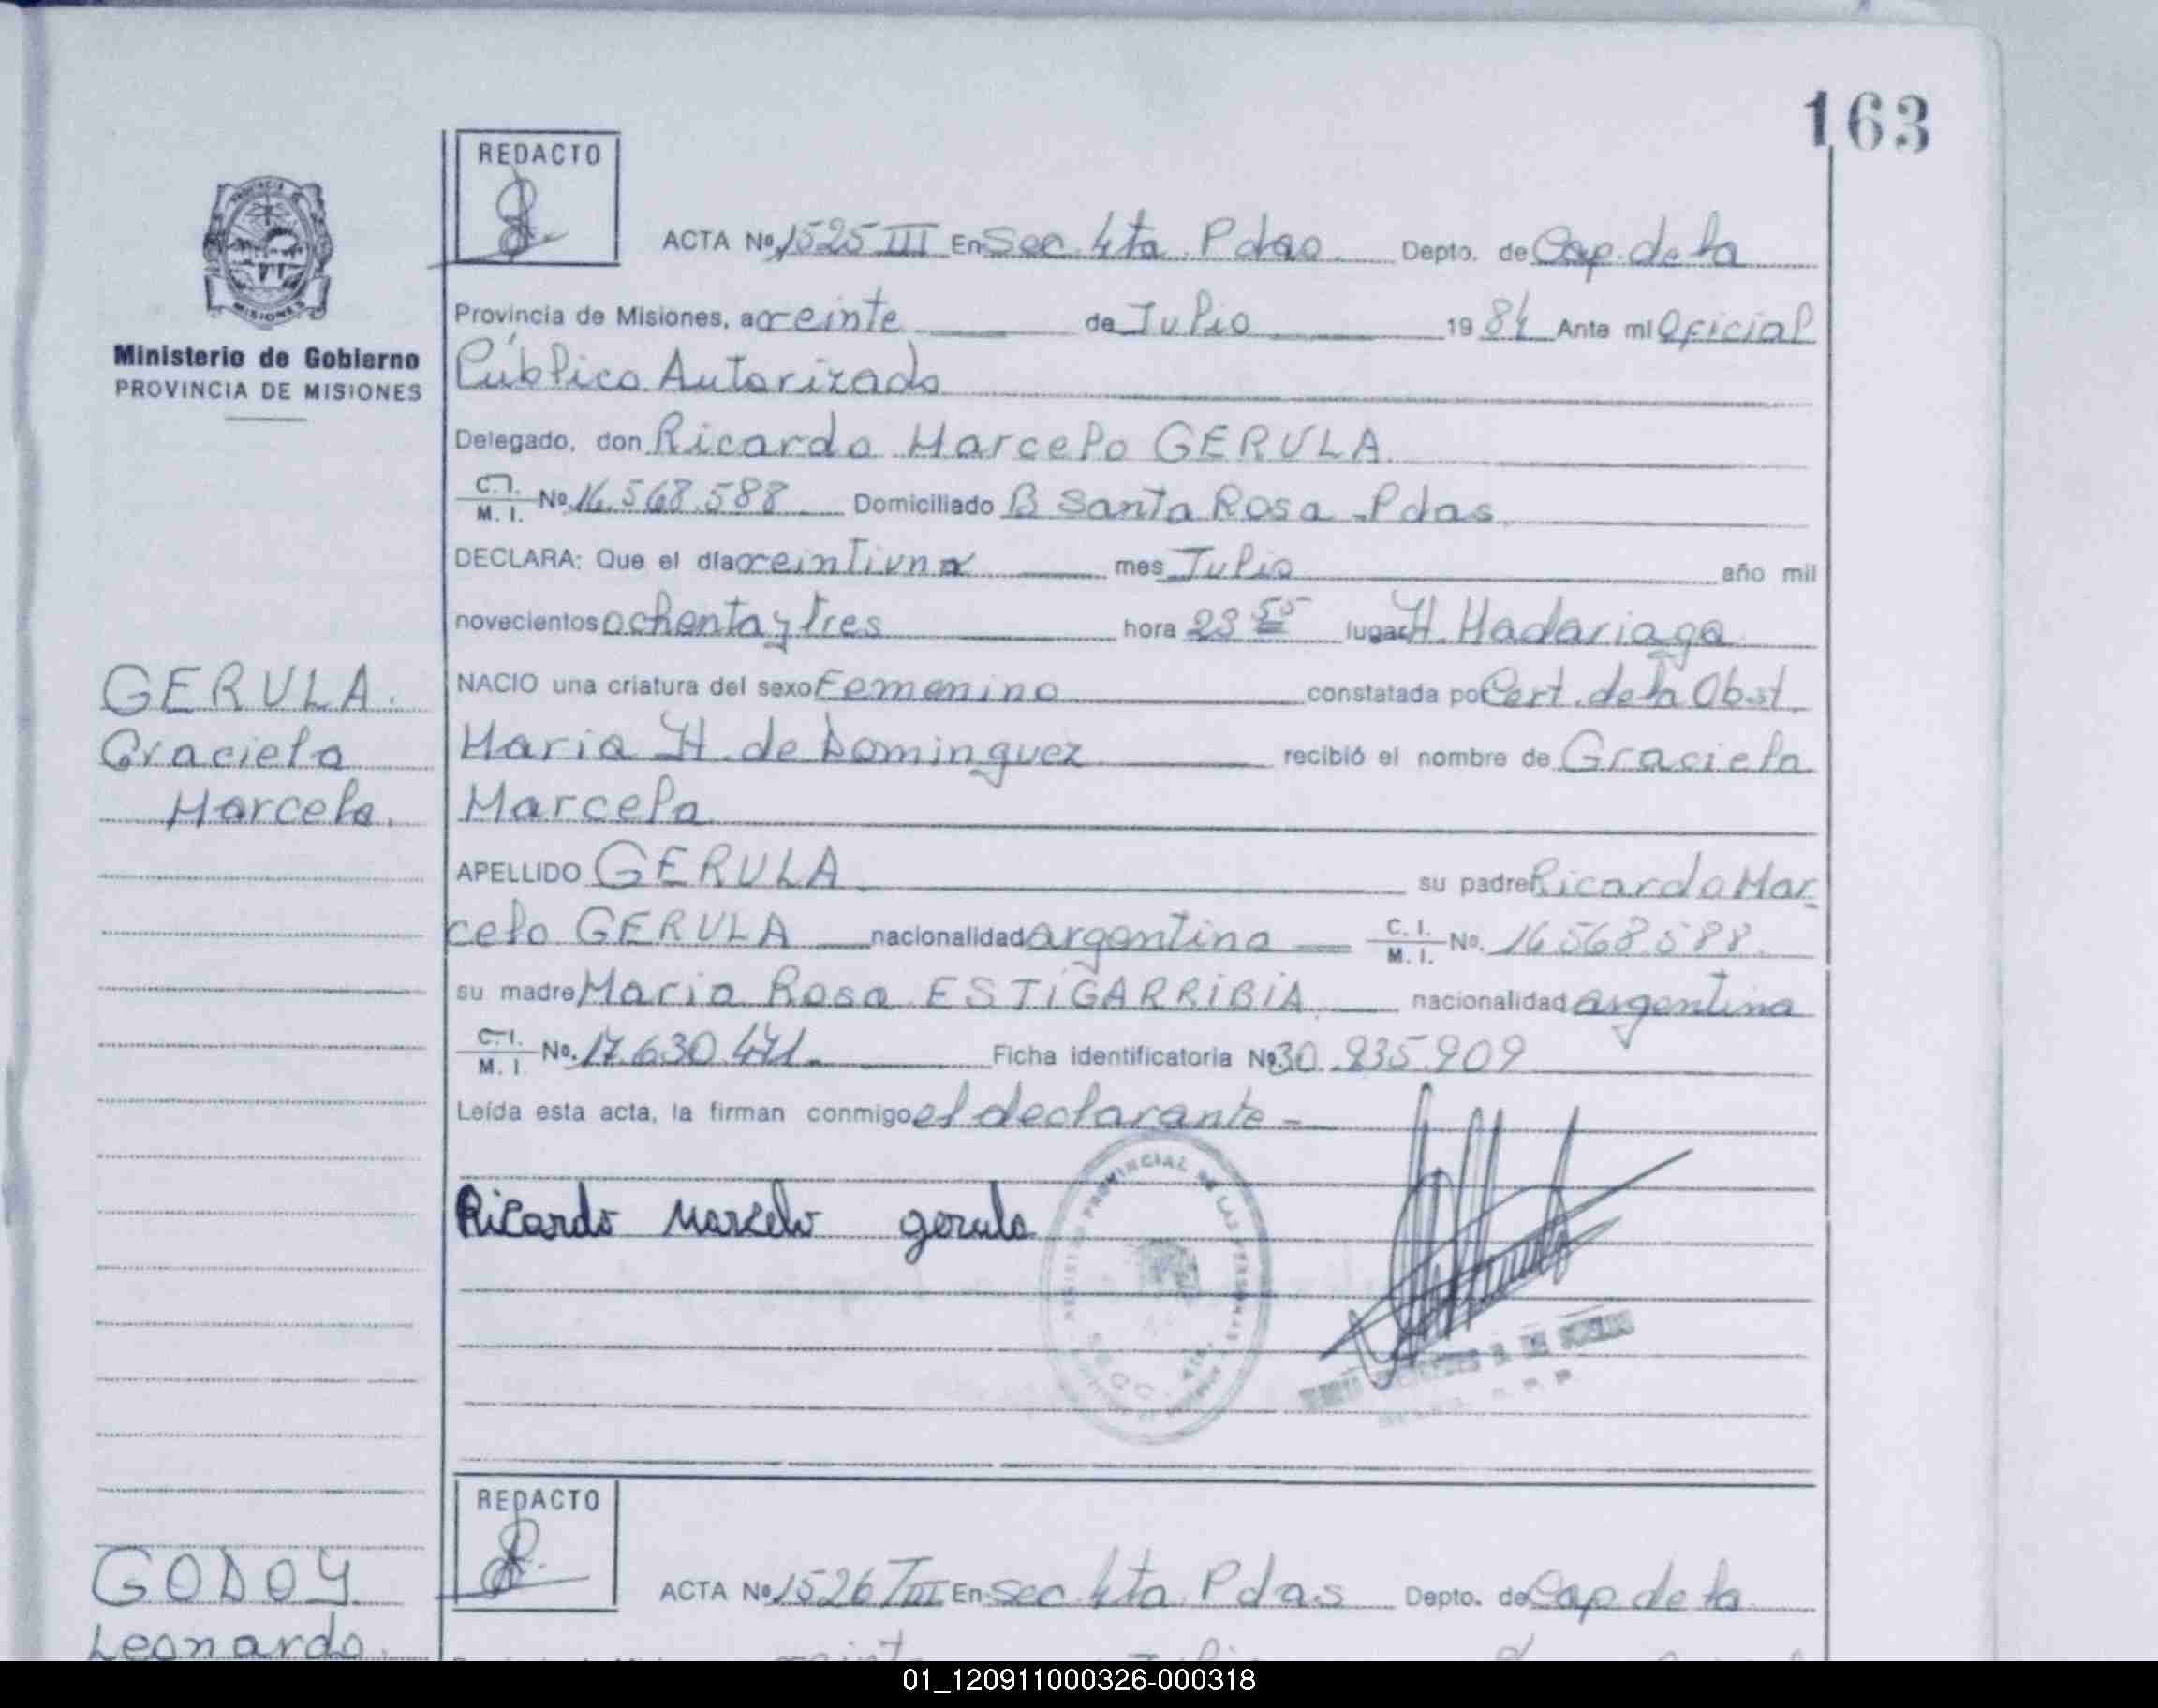 163
REDACTO
ACTA Nº 1525 III En Sec. 4ta. Pdas. Depto. de Cap. de la
MISIONES
Provincia de Misiones, a veinte de Julio 1984 Ante mi Oficial
Ministerio de Gobierno
PROVINCIA DE MISIONES
Público Autorizado
Delegado, don Ricardo Marcelo GERULA
C.I. M. I. Nº 16.568.588 Domiciliado B Santa Rosa - Pdas.
DECLARA: Que el día veintiuno mes Julio año mil
novecientos ochenta y tres hora 23 55 lugar H. Madariaga
GERULA.
Graciela
Marcela.
NACIO una criatura del sexo Femenino constatada por Cert. de la Obst.
Maria H. de Dominguez recibió el nombre de Graciela
Marcela
APELLIDO GERULA su padre Ricardo Mar
celo GERULA nacionalidad argentina C. I. M. I. No. 16568588.
su madre Maria Rosa ESTIGARRIBIA nacionalidad argentina
C.I. M. I No. 17.630.471 Ficha identificatoria Nº 30.235.909
Leída esta acta, la firman conmigo el declarante -
Ricardo Marcelo gerula
PROVINCIAL DE LAS PERSONAS
SECC. 4ta.
REDACTO
GODOY
Leonardo
ACTA Nº 1526 / III En Sec. 4ta. Pdas Depto. de Cap de la
01_120911000326-000318